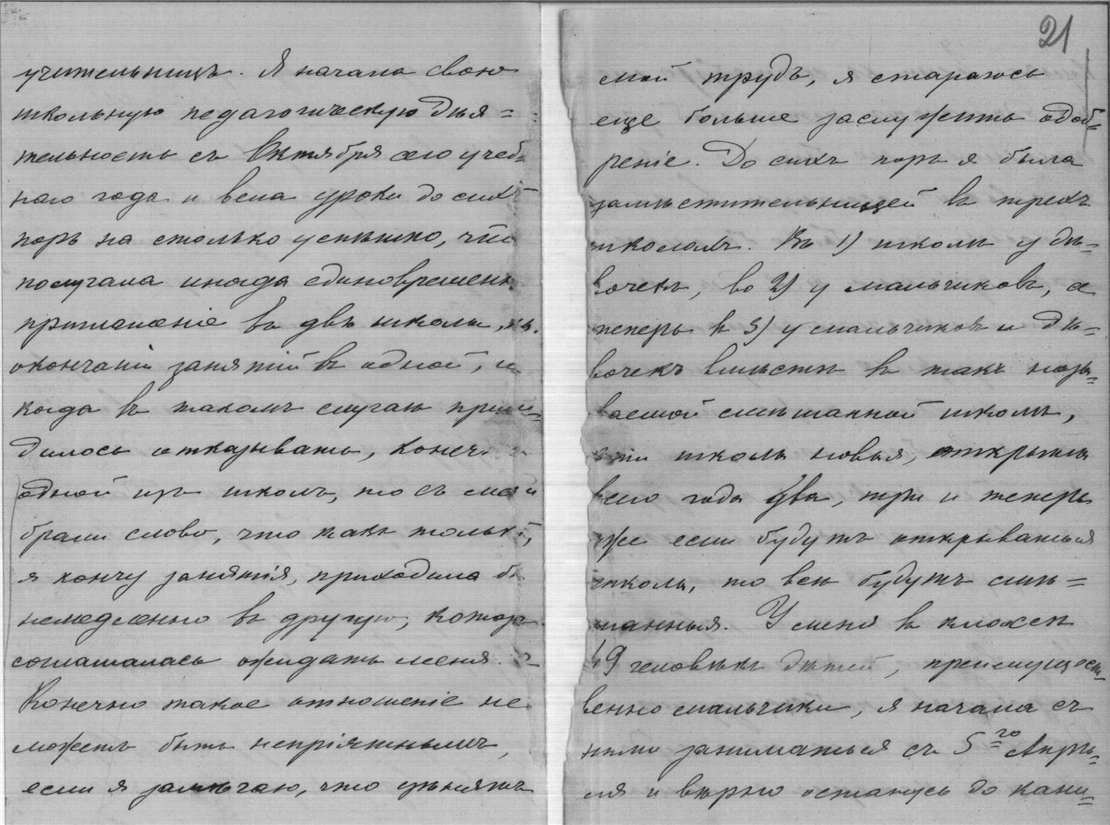 учительницъ. Я начала свою
школьную педагогическую дѣя=
тельность съ Октября сего учеб=
наго года и вела уроки до сихъ
поръ на столько успѣшно, что
получала иногда единовременно
приглашеніе въ двѣ школы, по
окончаніи занятій въ одной, и
когда въ такомъ случаѣ прихо=
дилось отказывать, конечно
одной изъ школъ, то съ меня
брали слово, что какъ только
я кончу занятія, приходила бы
немедленно въ другую, которая
соглашалась ожидать меня.
Конечно такое отношеніе не
можетъ быть непріятнымъ,
если я замѣчаю, что цѣнятъ
21
мой трудъ, я стараюсь
еще больше заслужить одоб=
реніе. До сихъ поръ я была
замѣстительницей въ трехъ
школахъ. Въ 1) школѣ у дѣ=
вочекъ, во 2) у мальчиковъ, а
теперь въ 3) у мальчиковъ и дѣ=
вочекъ вмѣстѣ въ такъ назы=
ваемой смѣшанной школѣ,
эти школы новыя, открыты
всего года два, три и теперь
уже если будутъ открываться
школы, то всѣ будутъ смѣ=
шанныя. У меня въ классѣ
49 человѣкъ дѣтей, преимущест=
венно мальчики, я начала съ
ними заниматься съ 5го Апрѣ=
ля и вѣрно останусь до кани=